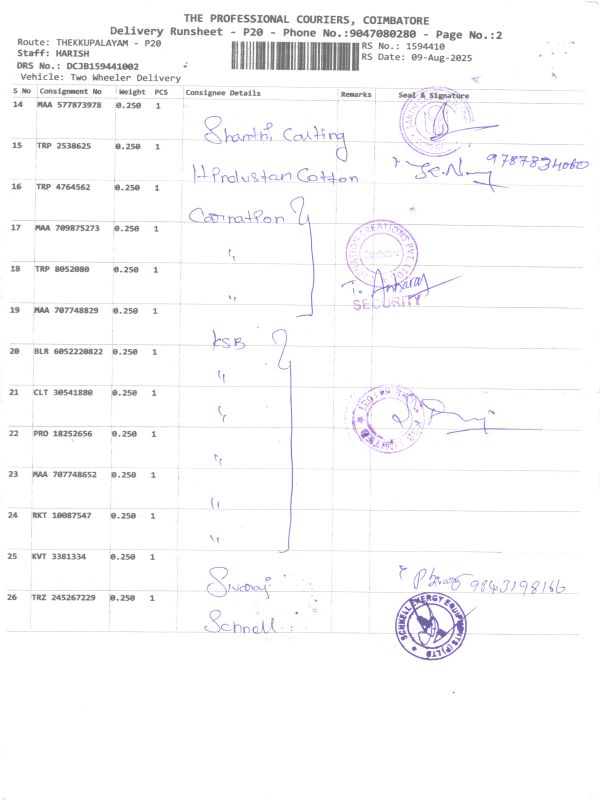 THE PROFESSIONAL COURIERS, COIMBATORE
Delivery Runsheet - P20 - Phone No.:9047080280 - Page No.:2
Route: THEKKUPALAYAM - P20
RS No.: 1594410
Staff: HARISH
RS Date: 09-Aug-2025
DRS No.: DCJB159441002
Vehicle: Two Wheeler Delivery
S No Consignment No Weight PCS Consignee Details Remarks Seal & Signature
14 MAA 577873978 0.250 1 Shanthi Casting
15 TRP 2538625 0.250 1 Hindustan Cotton 9787834060
16 TRP 4764562 0.250 1 Carnation
17 MAA 709875273 0.250 1 "
18 TRP 8052080 0.250 1 " SECURITY
19 MAA 707748829 0.250 1 KSB
20 BLR 6052220822 0.250 1 "
21 CLT 30541880 0.250 1 "
22 PRO 18252656 0.250 1 "
23 MAA 707748652 0.250 1 "
24 RKT 10087547 0.250 1 "
25 KVT 3381334 0.250 1 Swaraj 9843198166
26 TRZ 245267229 0.250 1 Schnell
SCHNELL ENERGY EQUIPMENTS (P) LTD